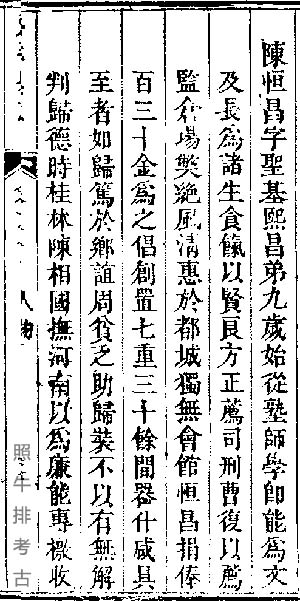 陳恒昌字聖基熙昌弟九歲始從塾師學即能爲文
及長爲諸生食餼以賢良方正薦司刑曹復以薦
監倉塲獘絶風淸惠於都城獨無會館恒昌捐俸
百三十金爲之倡創置七重三十餘間器什咸具
至者如歸篤於鄉誼周貧乏助歸裝不以有無解
判歸德時桂林陳相國撫河南以爲廉能專檄收
人物
照牛排考古